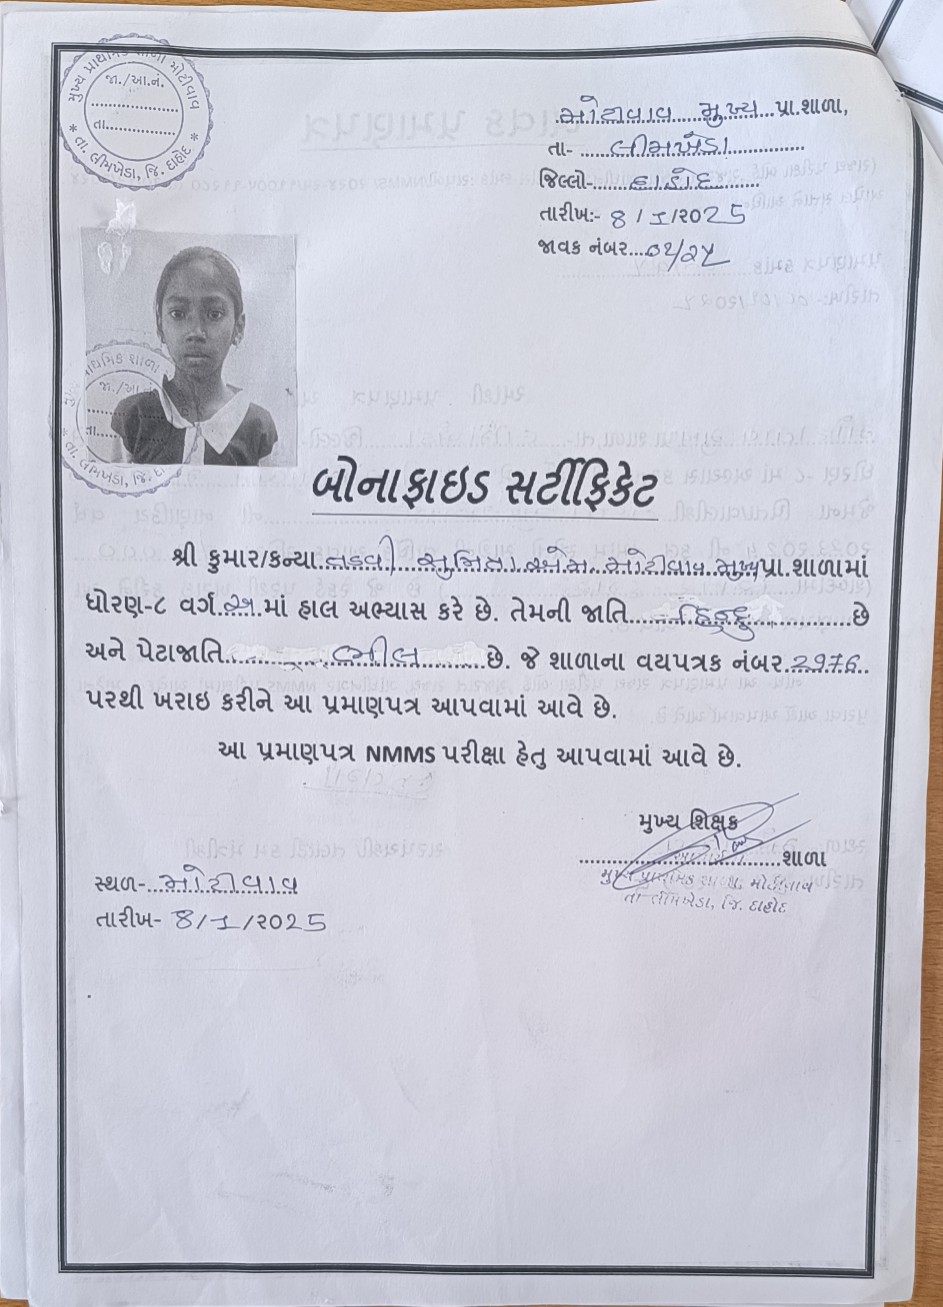 મુખ્ય પ્રાથમિક શાળા મોટીવાવ
જા./આ.નં.
તા.
* તા. લીમખેડા, જિ. દાહોદ *
મોટીવાવ મુખ્ય પ્રા.શાળા,
તા- લીમખેડા
જિલ્લો- દાહોદ
તારીખઃ- 8/1/2025
જાવક નંબર...૦૧/૨૫
માધમિક શાળા
જા./આ.નં.
તા.
તા. લીમખેડા, જિ.
બોનાફાઇડ સર્ટીફિકેટ
શ્રી કુમાર/કન્યા મોટીવાવ મુખ્ય પ્રા.શાળામાં
ધોરણ-૮ વર્ગ માં હાલ અભ્યાસ કરે છે. તેમની જાતિ હિન્દુ છે
અને પેટાજાતિ ભીલ છે. જે શાળાના વયપત્રક નંબર 2976
પરથી ખરાઇ કરીને આ પ્રમાણપત્ર આપવામાં આવે છે.
આ પ્રમાણપત્ર NMMS પરીક્ષા હેતુ આપવામાં આવે છે.
મુખ્ય શિક્ષક
શાળા
મુખ્ય પ્રાથમિક શાળા, મોટીવાવ
તા લીમખેડા, જિ. દાહોદ
સ્થળ- મોટીવાવ
તારીખ- 8/1/2025